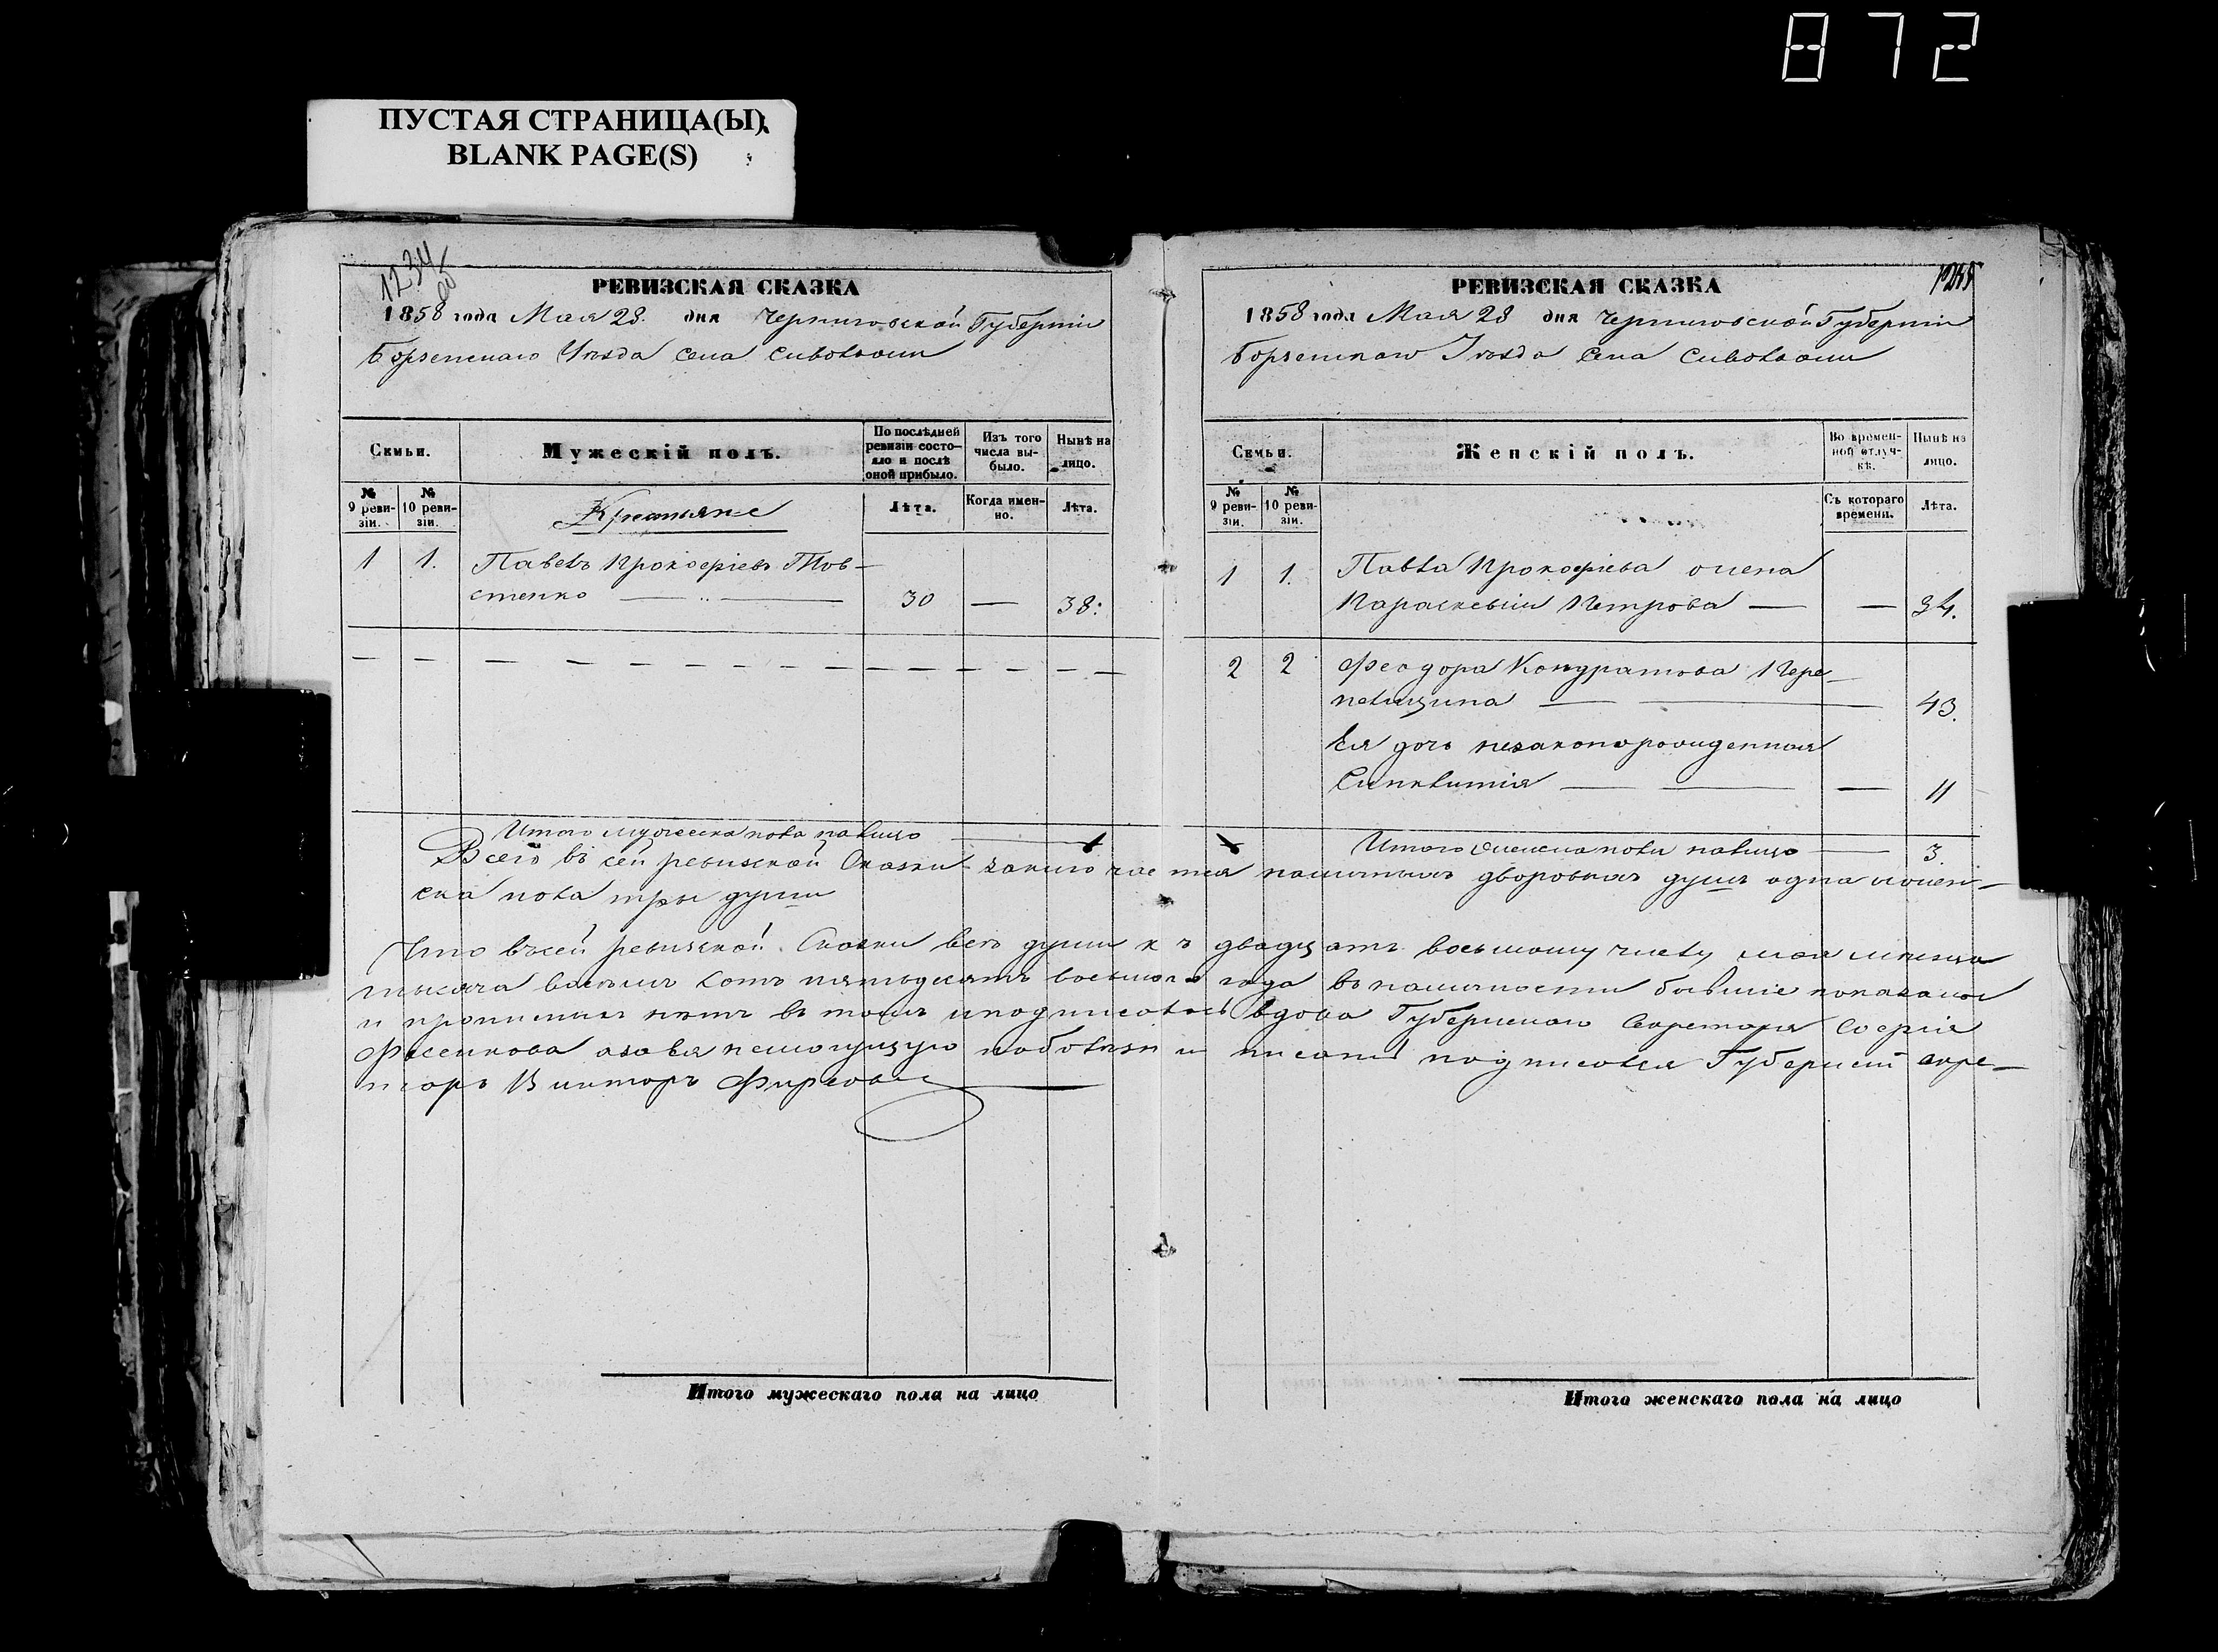 872
ПУСТАЯ СТРАНИЦА(Ы)
BLANK PAGE(S)
1234
об
РЕВИЗСКАЯ СКАЗКА
1858 года Мая 28. дня Черниговской Губернiи
Борзенскаго Уѣзда Села Сиволожи
Семьи.
Мужескiй полъ.
По послѣдней ревизiи состояло и послѣ оной прибыло.
Изъ того числа выбыло.
Нынѣ на лицо.
№ 9 ревизiи.
№ 10 ревизiи.
Крестьяне
Лѣта.
Когда именно.
Лѣта.
1 1. Павелъ Прокофiевъ Тов-
стенко — „ — 30 — 38:
Итого мужеска пола налицо 1
РЕВИЗСКАЯ СКАЗКА
1858 года Мая 28 дня Черниговской Губернiи
Борзенскаго Уѣзда Села Сиволожи
Семьи.
Женскiй полъ.
Во временной отлучкѣ.
Нынѣ на лицо.
№ 9 ревизiи.
№ 10 ревизiи.
Съ котораго времени.
Лѣта.
1 1. Павла Прокофiева жена
Параскевiи Петрова — — 34.
2 2 Феодора Кондратова Пере-
пелицина — 43.
Ея дочь незаконорожденная
Синклитiя — — 11
Итого женска пола налицо — 3.
Всего въ сей ревизской Сказки заключается наличныхъ дворовыхъ душъ одна женс-
ска пола три души
Что въ сей ревизской Сказки всѣ души къ двадцать восьмому числу мая мѣсяца
тысяча восемь сотъ пятьдесятъ восьмого года въ наличности бывшiе показаны
и прописныхъ нѣтъ въ томъ и подписалась вдова Губернскаго Секретаря Софiя
Фесенкова а за нея немогущую по болѣзни писать подписался Губернскiй Секре-
тарь Викторъ Фирсовъ
Итого мужескаго пола на лицо
Итого женскаго пола на лицо